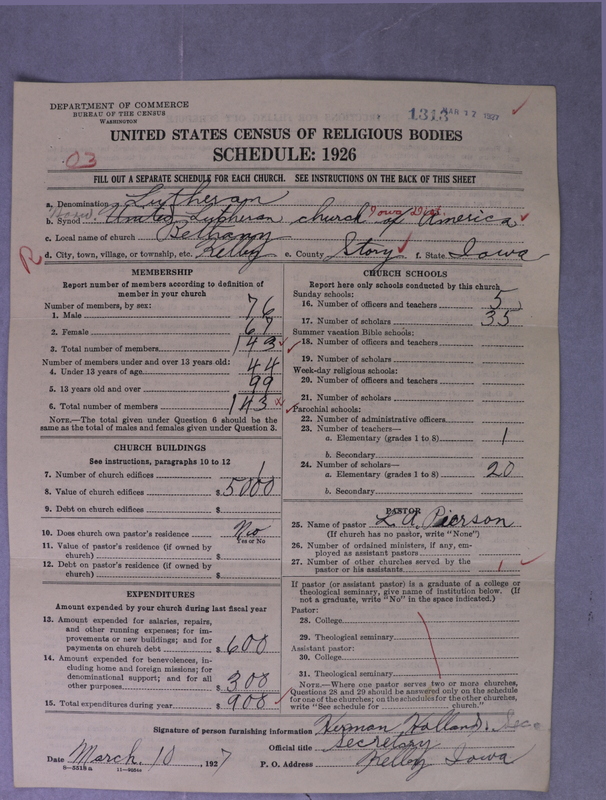 DEPARTMENT OF COMMERCE
BUREAU OF THE CENSUS
WASHINGTON
1313 MAR 12 1927
UNITED STATES CENSUS OF RELIGIOUS BODIES
03
SCHEDULE: 1926
FILL OUT A SEPARATE SCHEDULE FOR EACH CHURCH. SEE INSTRUCTIONS ON THE BACK OF THIS SHEET
a. Denomination Lutheran
Iowa Dist.
b. Synod United Lutheran church of America
c. Local name of church Bethany
R
d. City, town, village, or township, etc. Kelley e. County Story f. State Iowa
MEMBERSHIP
Report number of members according to definition of
member in your church
Number of members, by sex:
1. Male 76
2. Female 67
3. Total number of members 143
Number of members under and over 13 years old:
4. Under 13 years of age 44
5. 13 years old and over 99
6. Total number of members 143
NOTE.—The total given under Question 6 should be
same as the total of males and females given under Question 3.
CHURCH BUILDINGS
See instructions, paragraphs 10 to 12
7. Number of church edifices 1
8. Value of church edifices $5000
9. Debt on church edifices $
10. Does church own pastor's residence No
Yes or No
11. Value of pastor's residence (if owned by
church) $
12. Debt on pastor's residence (if owned by
church) $
EXPENDITURES
Amount expended by your church during last fiscal year
13. Amount expended for salaries, repairs,
and other running expenses; for im-
provements or new buildings; and for
payments on church debt $600
14. Amount expended for benevolences, in-
cluding home and foreign missions; for
denominational support; and for all
other purposes $308
15. Total expenditures during year $908
CHURCH SCHOOLS
Report here only schools conducted by this church
Sunday schools:
16. Number of officers and teachers 5
17. Number of scholars 35
Summer vacation Bible schools:
18. Number of officers and teachers
19. Number of scholars
Week-day religious schools:
20. Number of officers and teachers
21. Number of scholars
Parochial schools:
22. Number of administrative officers
23. Number of teachers—
a. Elementary (grades 1 to 8) 1
b. Secondary
24. Number of scholars—
a. Elementary (grades 1 to 8) 20
b. Secondary
PASTOR
25. Name of pastor L. A. Pierson
(If church has no pastor, write "None")
26. Number of ordained ministers, if any, em-
ployed as assistant pastors
27. Number of other churches served by the
pastor or his assistants 1
If pastor (or assistant pastor) is a graduate of a college or
theological seminary, give name of institution below. (If
not a graduate, write "No" in the space indicated.)
Pastor:
28. College
29. Theological seminary
Assistant pastor:
30. College
31. Theological seminary
NOTE.—Where one pastor serves two or more churches,
Questions 28 and 29 should be answered only on the schedule
for one of the churches; on the schedules for the other churches,
write "See schedule for church."
Signature of person furnishing information Herman Holland, Sec.
Official title Secretary
Date March, 10, 1927
P. O. Address Kelley Iowa